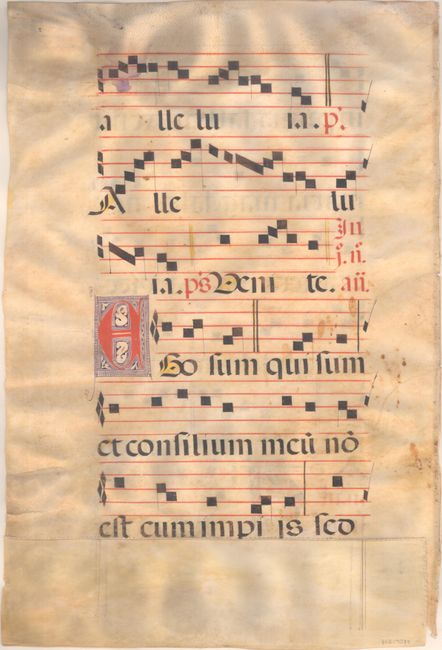 a lle lu ia. ps.
Alle lu
ia. ps Veni te. In
j. n. an.
EGo sum qui sum
et consilium meū nō
est cum impi is sed